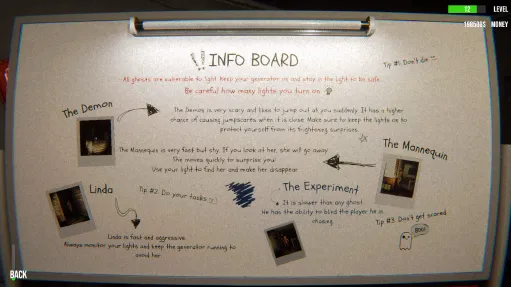 12 LEVEL
MONEY
INFO BOARD
Tip #1: Don't die
All ghosts are vulnerable to light. Keep your generator on and stay in the light to be safe.
Be careful how many lights you turn on
The Demon
The Demon is very scary and likes to jump out at you suddenly. It has a higher
chance of causing jumpscares when it is close. Make sure to keep the lights on to
protect yourself from its frightening surprises.
The Mannequin
The Mannequin is very fast but shy. If you look at her, she will go away.
She moves quickly to surprise you!
Use your light to find her and make her disappear
Linda
Tip #2: Do your tasks :)
The Experiment
It is slower than any ghost.
He has the ability to blind the player he is
chasing
Tip #3: Don't get scared
BOO!
Linda is fast and aggressive.
Always monitor your lights and keep the generator running to
avoid her
BACK